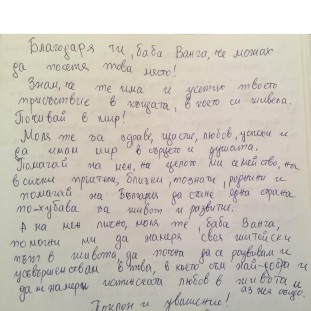 Благодаря ти, баба Ванга, че можах
да посетя това място!
Знам, че те има и усетих твоето
присъствие в къщата, в която си живяла.
Почивай в мир!
Моля те за здраве, щастие, любов, успехи и
да имам мир в сърцето и душата.
Помагай на мен, на цялото ми семейство, на
всички приятели, близки, познати, роднини и
помагай на България да стане една страна
по-хубава за живот и развитие.
А на мен лично, моля те, баба Ванга,
помогни ми да намеря своя житейски
път в живота, да почна да се развивам и
усъвършенствам в това, в което съм най-добра и
да намеря истинската любов в живота и
аз най-сетне.
Поклон и уважение!